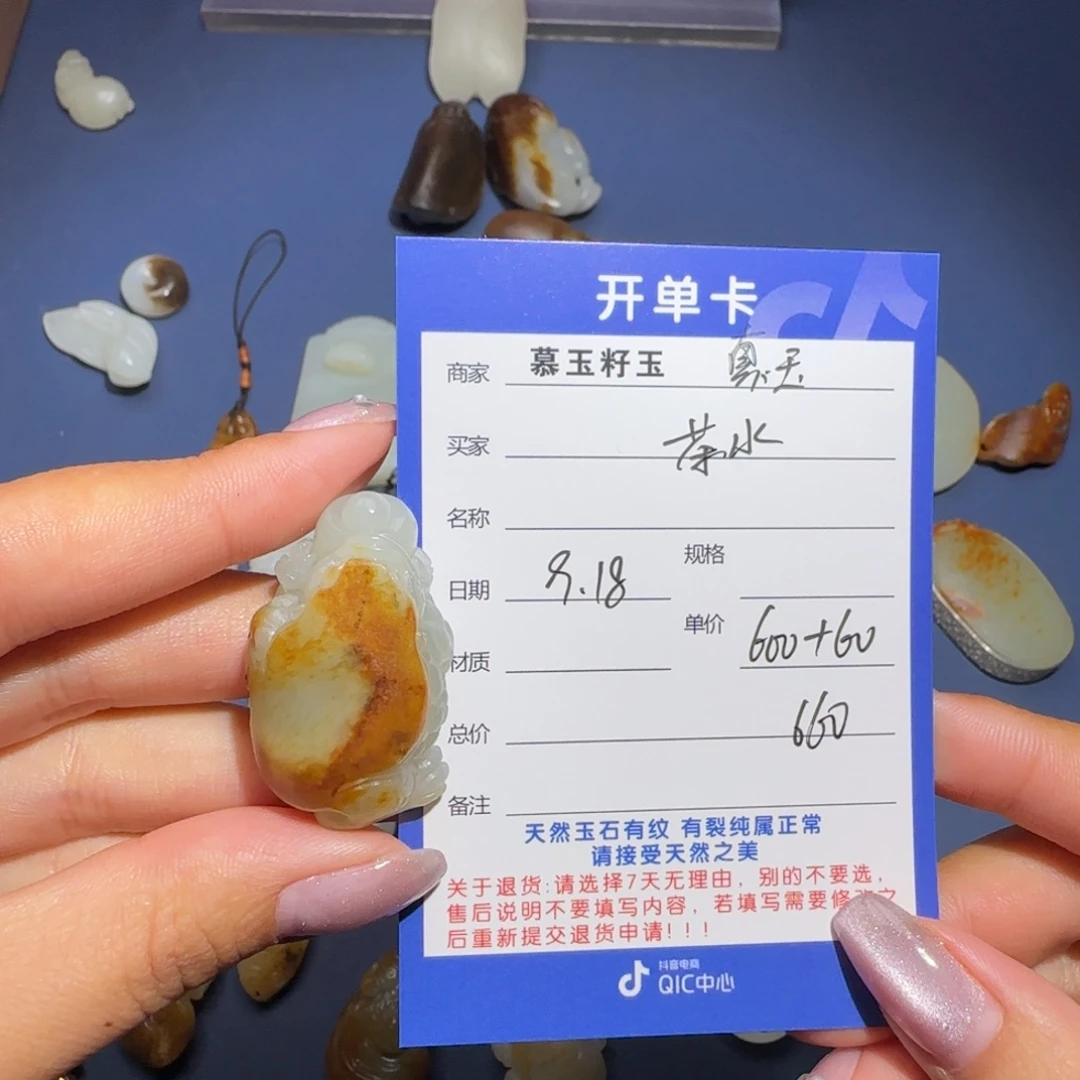 开单卡
商家 慕玉籽玉
买家 茶水
名称
规格
日期 9.18
单价 600+60
材质
总价 660
备注
天然玉石有纹 有裂纯属正常
请接受天然之美
关于退货:请选择7天无理由，别的不要选，
售后说明不要填写内容，若填写需要修改之
后重新提交退货申请!!!
抖音电商
QIC中心